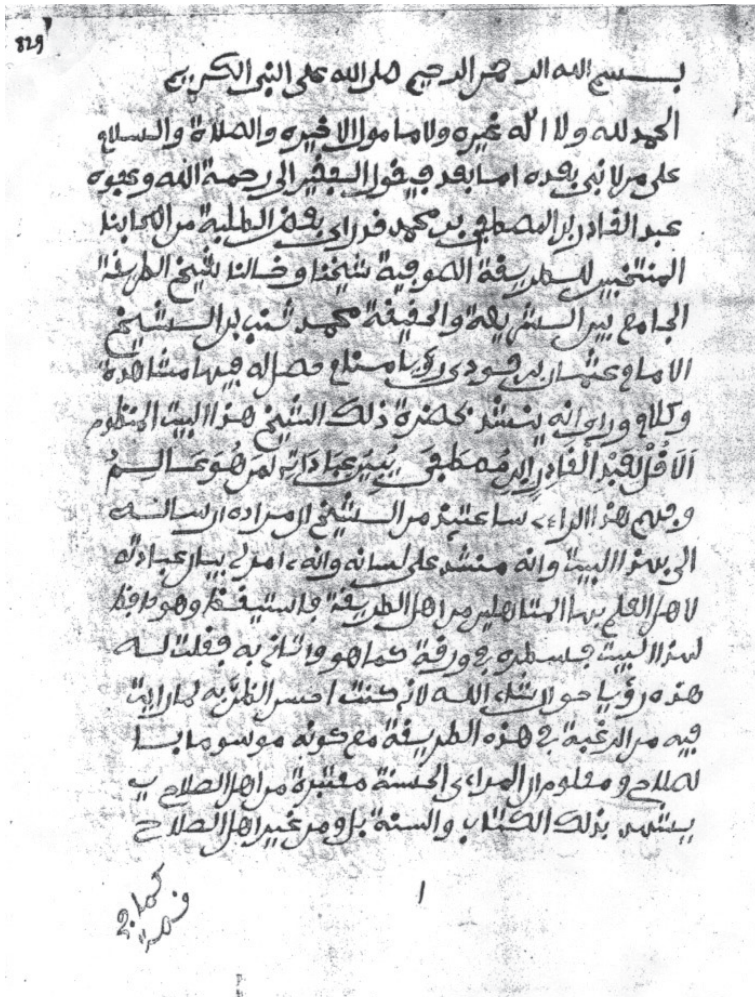 829
بسم الله الرحمن الرحيم صلى الله على النبي الكريم
الحمد لله ولا اله غيره ولا مامول الا خيره والصلاة والسلام
على من لا نبي بعده اما بعد فيقول الفقير الى رحمة الله وعفوه
عبد القادر بن المصطفى بن محمد قد راى بعض الطلبة من اصحابنا
المنتخبين للطريقة الصوفية شيخنا وخالنا شيخ الطريقة
الجامع بين الشريعة والحقيقة محمد ثنب بن الشيخ
الامام عثمان بن فودي رؤيا منام حصل له فيها مشاهدة
وكلام وراى انه ينشد بحضرة ذلك الشيخ هذا البيت المنظوم
اَلَا قُلْ لِعَبْدِ الْقَادِرِ اِبْنِ مُصْطَفَى يُبَيِّنْ عِبَادَاتِهِ لِمَنْ هُوَ عَالِمُ
وفهم هذا الراءي ساعتئذ من الشيخ ان مراده ارساله
الي بهذا البيت وانه منشد على لسانه وانه ءامر لي ببيان عباداته
لاهل العلم بها المتاهلين من اهل الطريقة فاستيقظ وهو حافظ
لهذا البيت فسطره في ورقة كما هو واتاني به فقلت له
هذه رؤيا حق ان شاء الله لاني كنت احسن الظن به لما رايت
فيه من الرغبة في هذه الطريقة مع كونه موسوما با
لصلاح ومعلوم ان المراءى الحسنة معتبرة من اهل الصلاح
يشهد بذلك الكتاب والسنة بل ومن غير اهل الصلاح
كما في
قصة
1